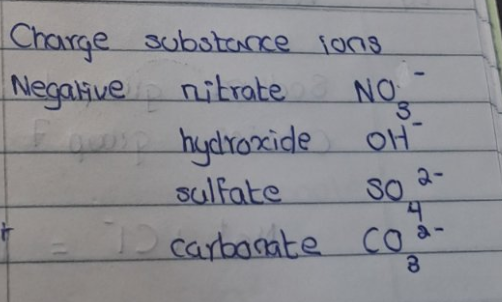 Charge substance ions
Negative nitrate NO₃⁻
hydroxide OH⁻
sulfate SO₄²⁻
carbonate CO₃²⁻